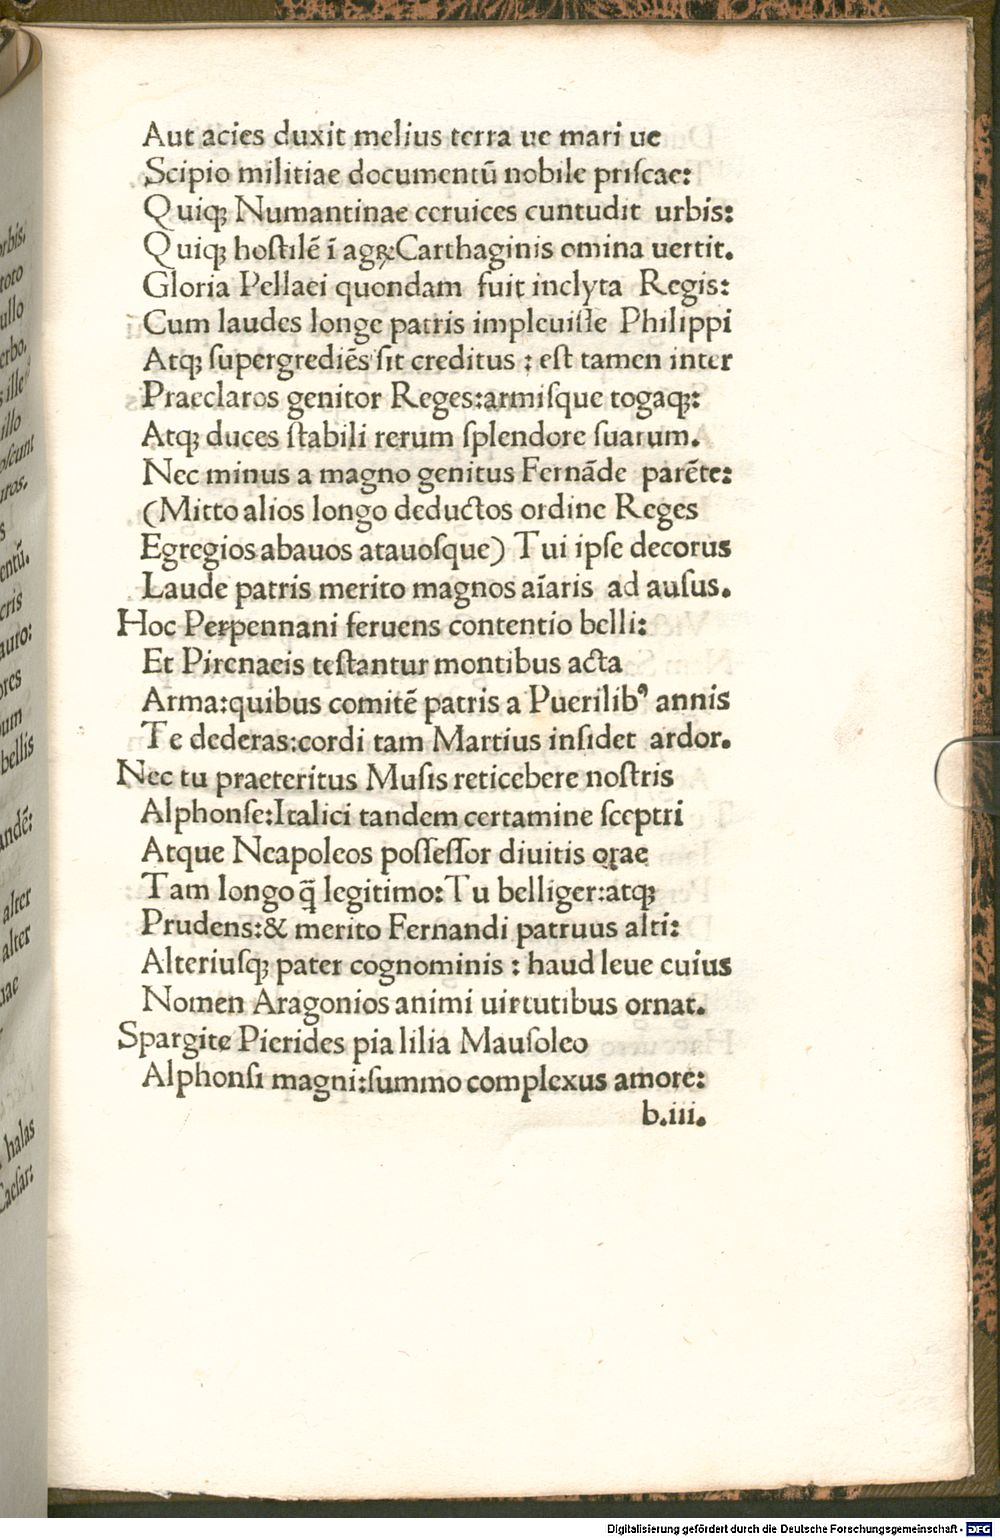 Aut acies duxit melius terra ue mari ue
Scipio militiae documentū nobile priſcae:
Quiqꝫ Numantinae ceruices cuntudit urbis:
Quiqꝫ hoſtilē ī agꝝ:Carthaginis omina uertit.
Gloria Pellaei quondam fuit inclyta Regis:
Cum laudes longe patris impleuiſſe Philippi
Atqꝫ ſupergrediēs ſit creditus : eſt tamen inter
Praeclaros genitor Reges:armiſque togaqꝫ:
Atqꝫ duces ſtabili rerum ſplendore ſuarum.
Nec minus a magno genitus Fernāde parēte:
(Mitto alios longo deductos ordine Reges
Egregios abauos atauoſque) Tui ipſe decorus
Laude patris merito magnos aīaris ad auſus.
Hoc Perpennani feruens contentio belli:
Et Pirenaeis teſtantur montibus acta
Arma:quibus comitē patris a Puerilibꝰ annis
Te dederas:cordi tam Martius inſidet ardor.
Nec tu praeteritus Muſis reticebere noſtris
Alphonſe:Italici tandem certamine ſceptri
Atque Neapoleos poſſeſſor diuitis orae
Tam longo q̄ legitimo:Tu belliger:atqꝫ
Prudens:& merito Fernandi patruus alti:
Alteriuſqꝫ pater cognominis : haud leue cuius
Nomen Aragonios animi uirtutibus ornat.
Spargite Pierides pia lilia Mauſoleo
Alphonſi magni:ſummo complexus amore:
b.iii.
orbis:
toto
ullo
erbo.
ille
illo
oſcunt
uros.
s
entū.
cris
auro:
ores
bellis
andē:
alter
alter
uae
halas
Caeſar:
Digitalisierung gefördert durch die Deutsche Forschungsgemeinschaft - DFG